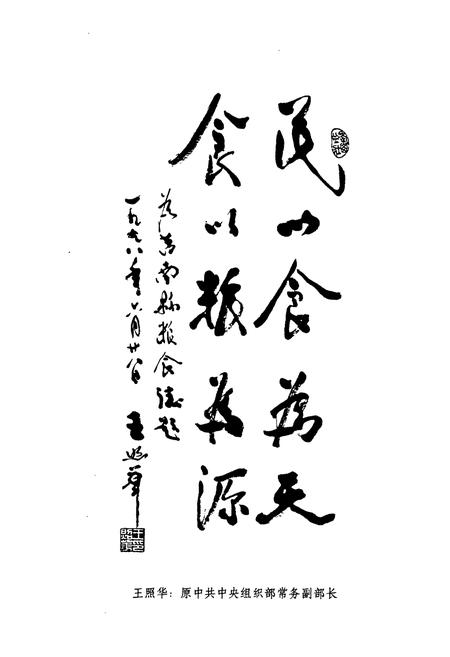 民以食為天
食以粮為源
为莒南縣粮食志题
一九九八年六月廿八日 王照華
王照华：原中共中央组织部常务副部长